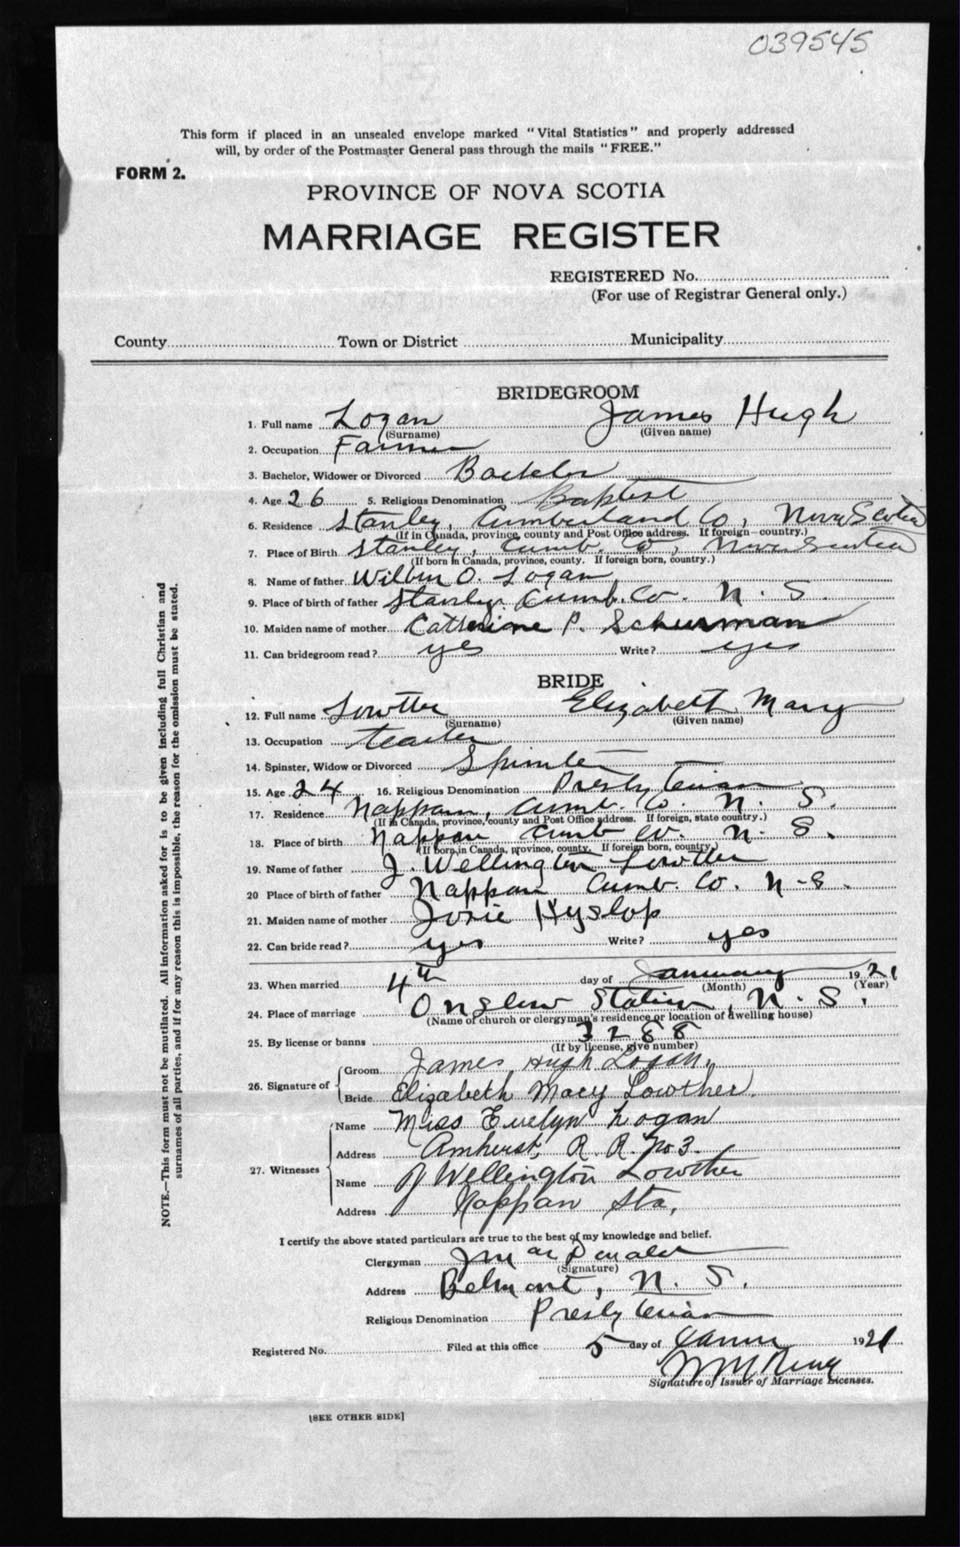 039545
This form if placed in an unsealed envelope marked "Vital Statistics" and properly addressed
will, by order of the Postmaster General pass through the mails "FREE."
FORM 2.
PROVINCE OF NOVA SCOTIA
MARRIAGE REGISTER
REGISTERED No.
(For use of Registrar General only.)
County Town or District Municipality
BRIDEGROOM
1. Full name Logan James Hugh
(Surname) (Given name)
2. Occupation Farmer
3. Bachelor, Widower or Divorced Bachelor
4. Age 26 5. Religious Denomination Baptist
6. Residence Stanley, Cumberland Co, Nova Scotia
(If in Canada, province, county and Post Office address. If foreign—country.)
7. Place of Birth Stanley, Cumb. Co, Nova Scotia
(If born in Canada, province, county. If foreign born, country.)
8. Name of father Wilbur O. Logan
9. Place of birth of father Stanley. Cumb. Co. N. S.
10. Maiden name of mother Catherine P. Schurman
11. Can bridegroom read? yes Write? yes
BRIDE
12. Full name Lowther Elizabeth Mary
(Surname) (Given name)
13. Occupation teacher
14. Spinster, Widow or Divorced Spinster
15. Age 24 16. Religious Denomination Presbyterian
17. Residence Nappan, Cumb. Co. N. S.
(If in Canada, province, county and Post Office address. If foreign, state country.)
18. Place of birth Nappan Cumb Co. N. S.
(If born in Canada, province, county. If foreign born, country.)
19. Name of father J. Wellington Lowther
20 Place of birth of father Nappan Cumb. Co. N-S.
21. Maiden name of mother Josie Hyslop
22. Can bride read? yes Write? yes
23. When married 4th day of January 1921
(Month) (Year)
24. Place of marriage Onslow Station, N. S.
(Name of church or clergyman's residence or location of dwelling house)
25. By license or banns 3288
(If by license, give number)
26. Signature of Groom James Hugh Logan,
Bride Elizabeth Mary Lowther.
27. Witnesses Name Miss Evelyn Logan
Address Amherst, R. R. No 3.
Name J Wellington Lowther
Address Nappan Sta,
I certify the above stated particulars are true to the best of my knowledge and belief.
Clergyman J MacDonald
(Signature)
Address Belmont, N. S.
Religious Denomination Presbyterian
Registered No. Filed at this office 5 day of 1921
Signature of Issuer of Marriage Licenses.
[SEE OTHER SIDE]
NOTE.—This form must not be mutilated. All information asked for is to be given including full Christian and
surnames of all parties, and if for any reason this is impossible, the reason for the omission must be stated.